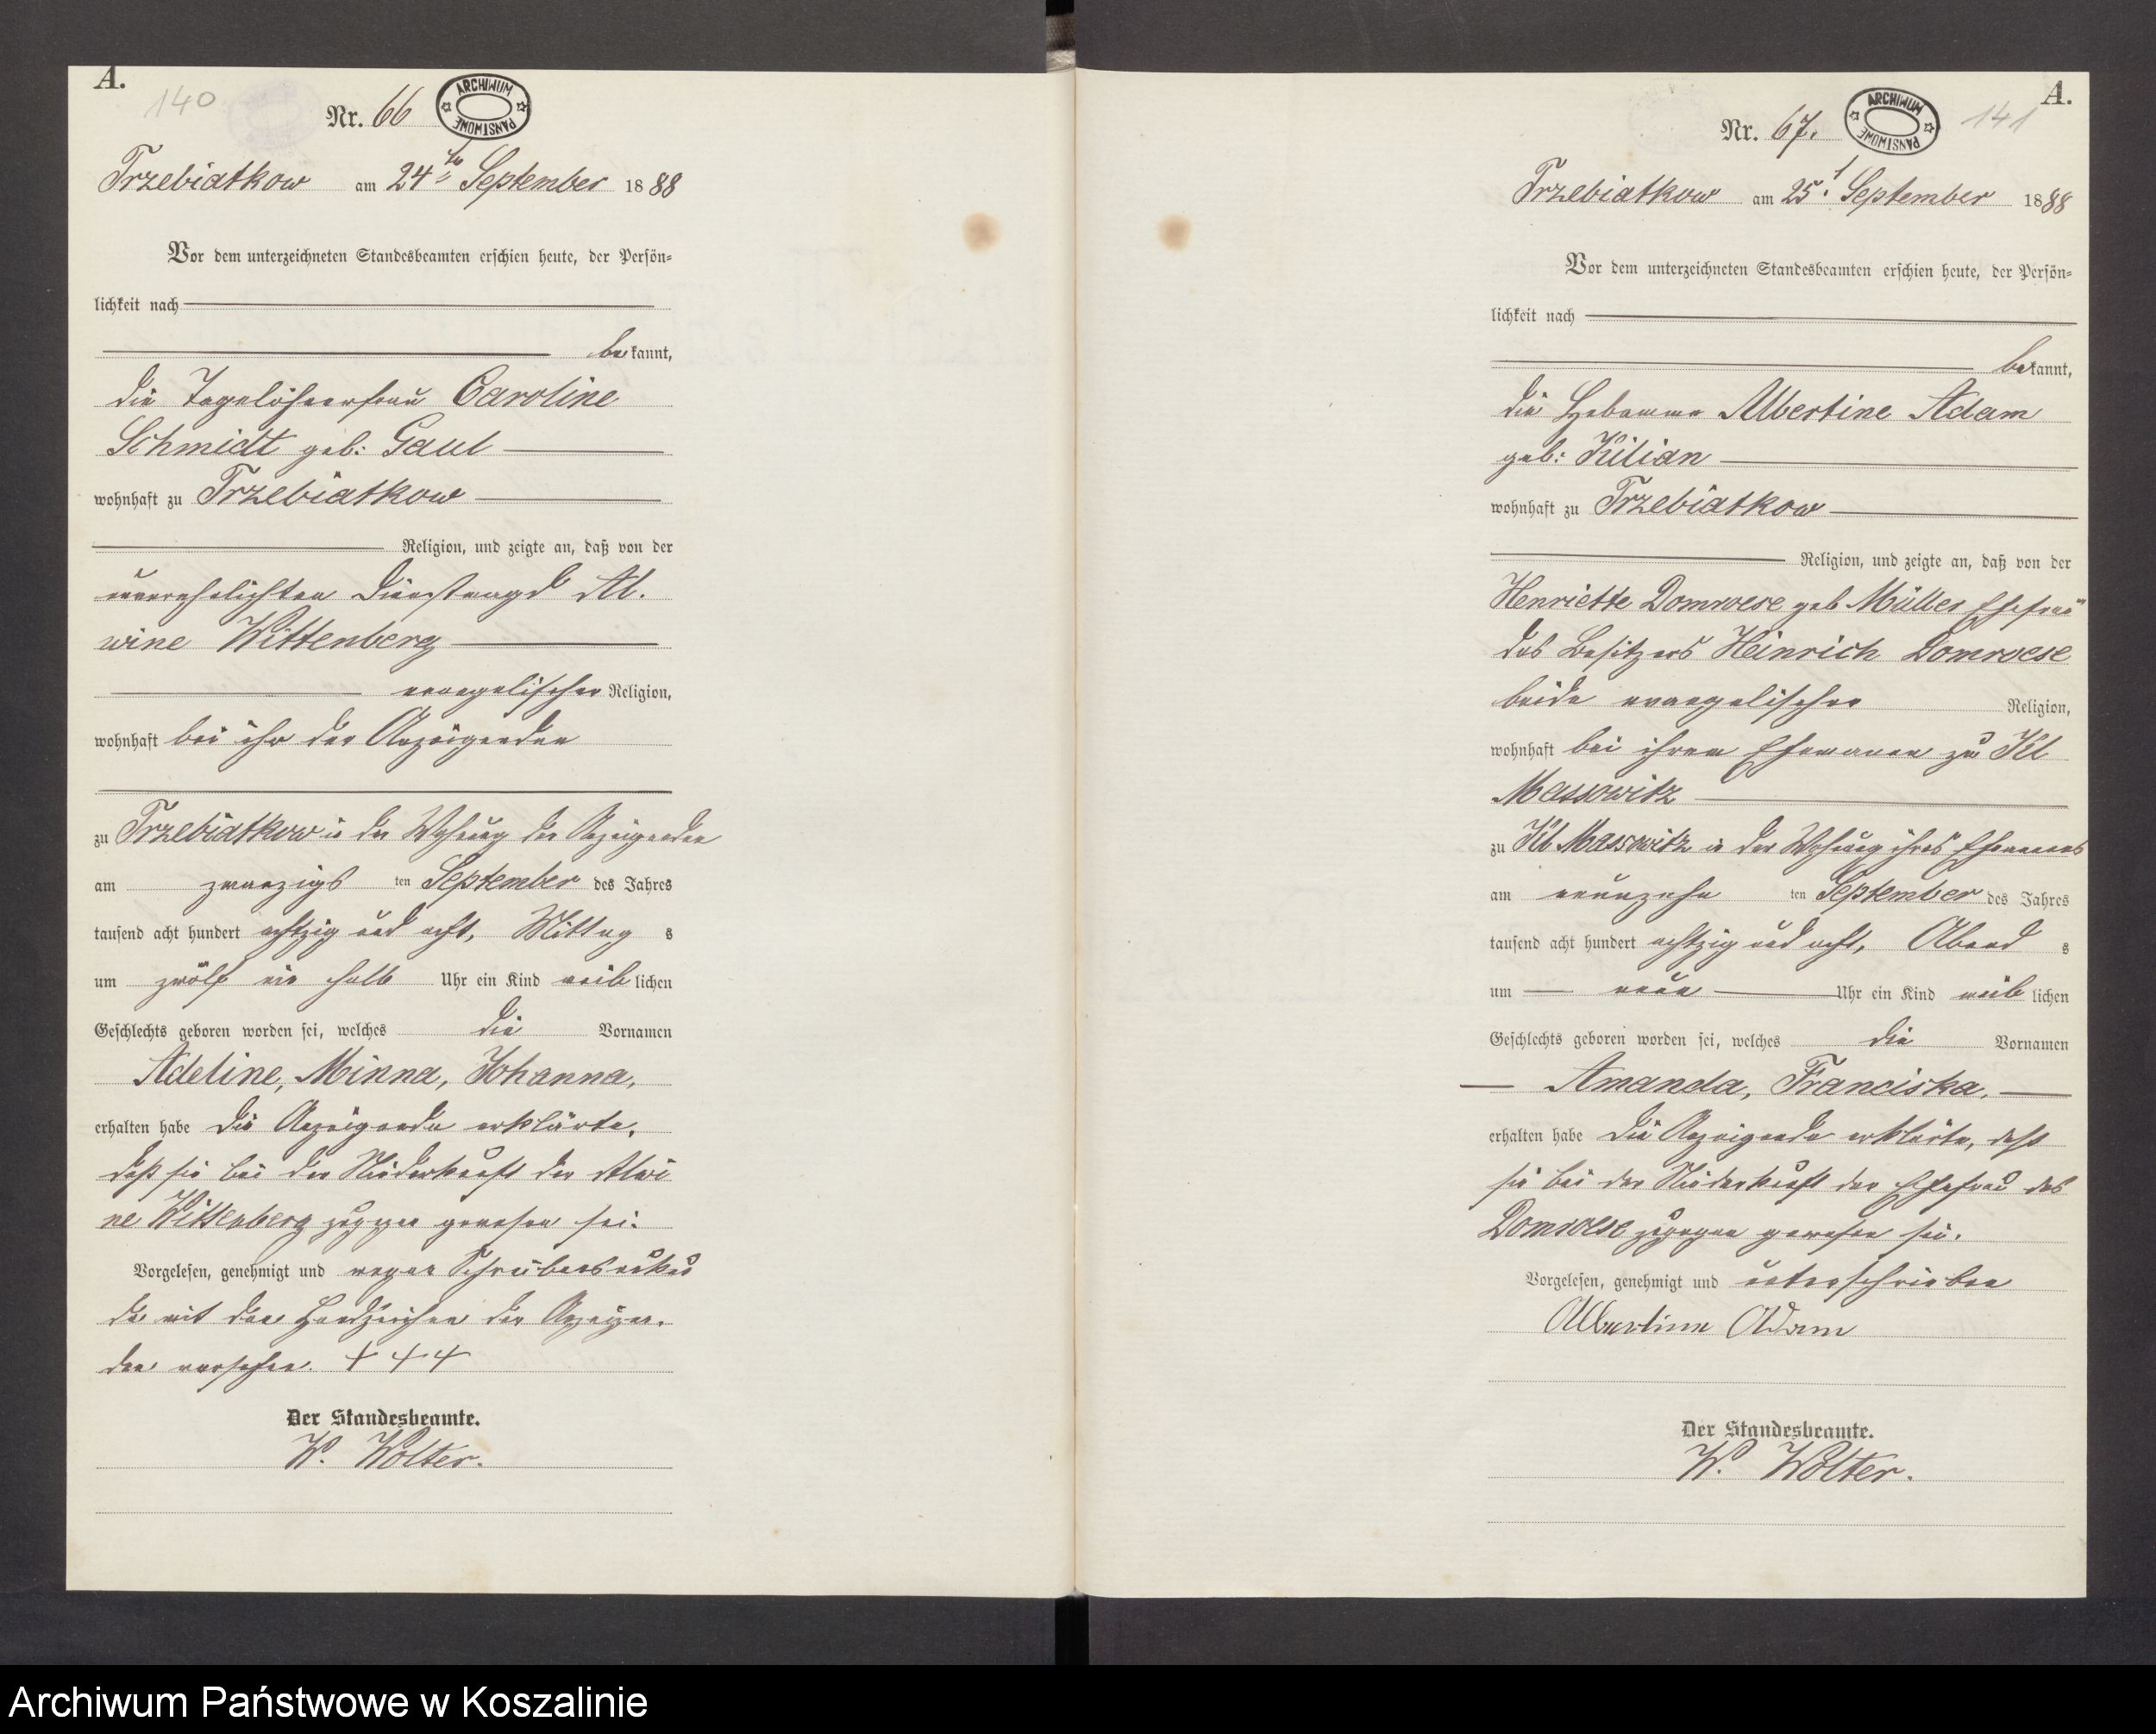 A.
140
Nr. 66
ARCHIWUM PAŃSTWOWE
Trzebiatkow am 24ten September 1888
Vor dem unterzeichneten Standesbeamten erschien heute, der Persön-
lichkeit nach
bekannt,
die Tagelöhnerfrau Caroline
Schmidt geb: Gaul
wohnhaft zu Trzebiatkow
Religion, und zeigte an, daß von der
unverehelichten Dienstmagd Al-
wine Wittenberg
evangelischer Religion,
wohnhaft bei ihr der Anzeigenden
zu Trzebiatkow in der Wohnung der Anzeigenden
am zwanzigsten September des Jahres
tausend acht hundert achtzig und acht, Mittags
um zwölf ein halb Uhr ein Kind weiblichen
Geschlechts geboren worden sei, welches die Vornamen
Adeline, Minna, Johanna,
erhalten habe die Anzeigende erklärte,
daß sie bei der Niederkunft der Alwi
ne Wittenberg zugegen gewesen sei.
Vorgelesen, genehmigt und wegen Schreibensunkun
de mit dem Handzeichen der Anzeigen-
den versehen. + + +
Der Standesbeamte.
W. Wolter.
A.
141
Nr. 67.
ARCHIWUM PAŃSTWOWE
Trzebiatkow am 25. September 1888
Vor dem unterzeichneten Standesbeamten erschien heute, der Persön-
lichkeit nach
bekannt,
die Hebamme Albertine Adam
geb: Kilian
wohnhaft zu Trzebiatkow
Religion, und zeigte an, daß von der
Henriette Domroese geb Müller Ehefrau
des Besitzers Heinrich Domroese
beide evangelischer Religion,
wohnhaft bei ihrem Ehemanne zu Kl
Massowitz
zu Kl Massowitz in der Wohnung ihres Ehemannes
am neunzehnten September des Jahres
tausend acht hundert achtzig und acht, Abends
um neun Uhr ein Kind weiblichen
Geschlechts geboren worden sei, welches die Vornamen
Amanda, Franciska,
erhalten habe die Anzeigende erklärte, daß
sie bei der Niederkunft der Ehefrau des
Domroese zugegen gewesen sei.
Vorgelesen, genehmigt und unterschrieben
Albertine Adam
Der Standesbeamte.
W. Wolter.
Archiwum Państwowe w Koszalinie